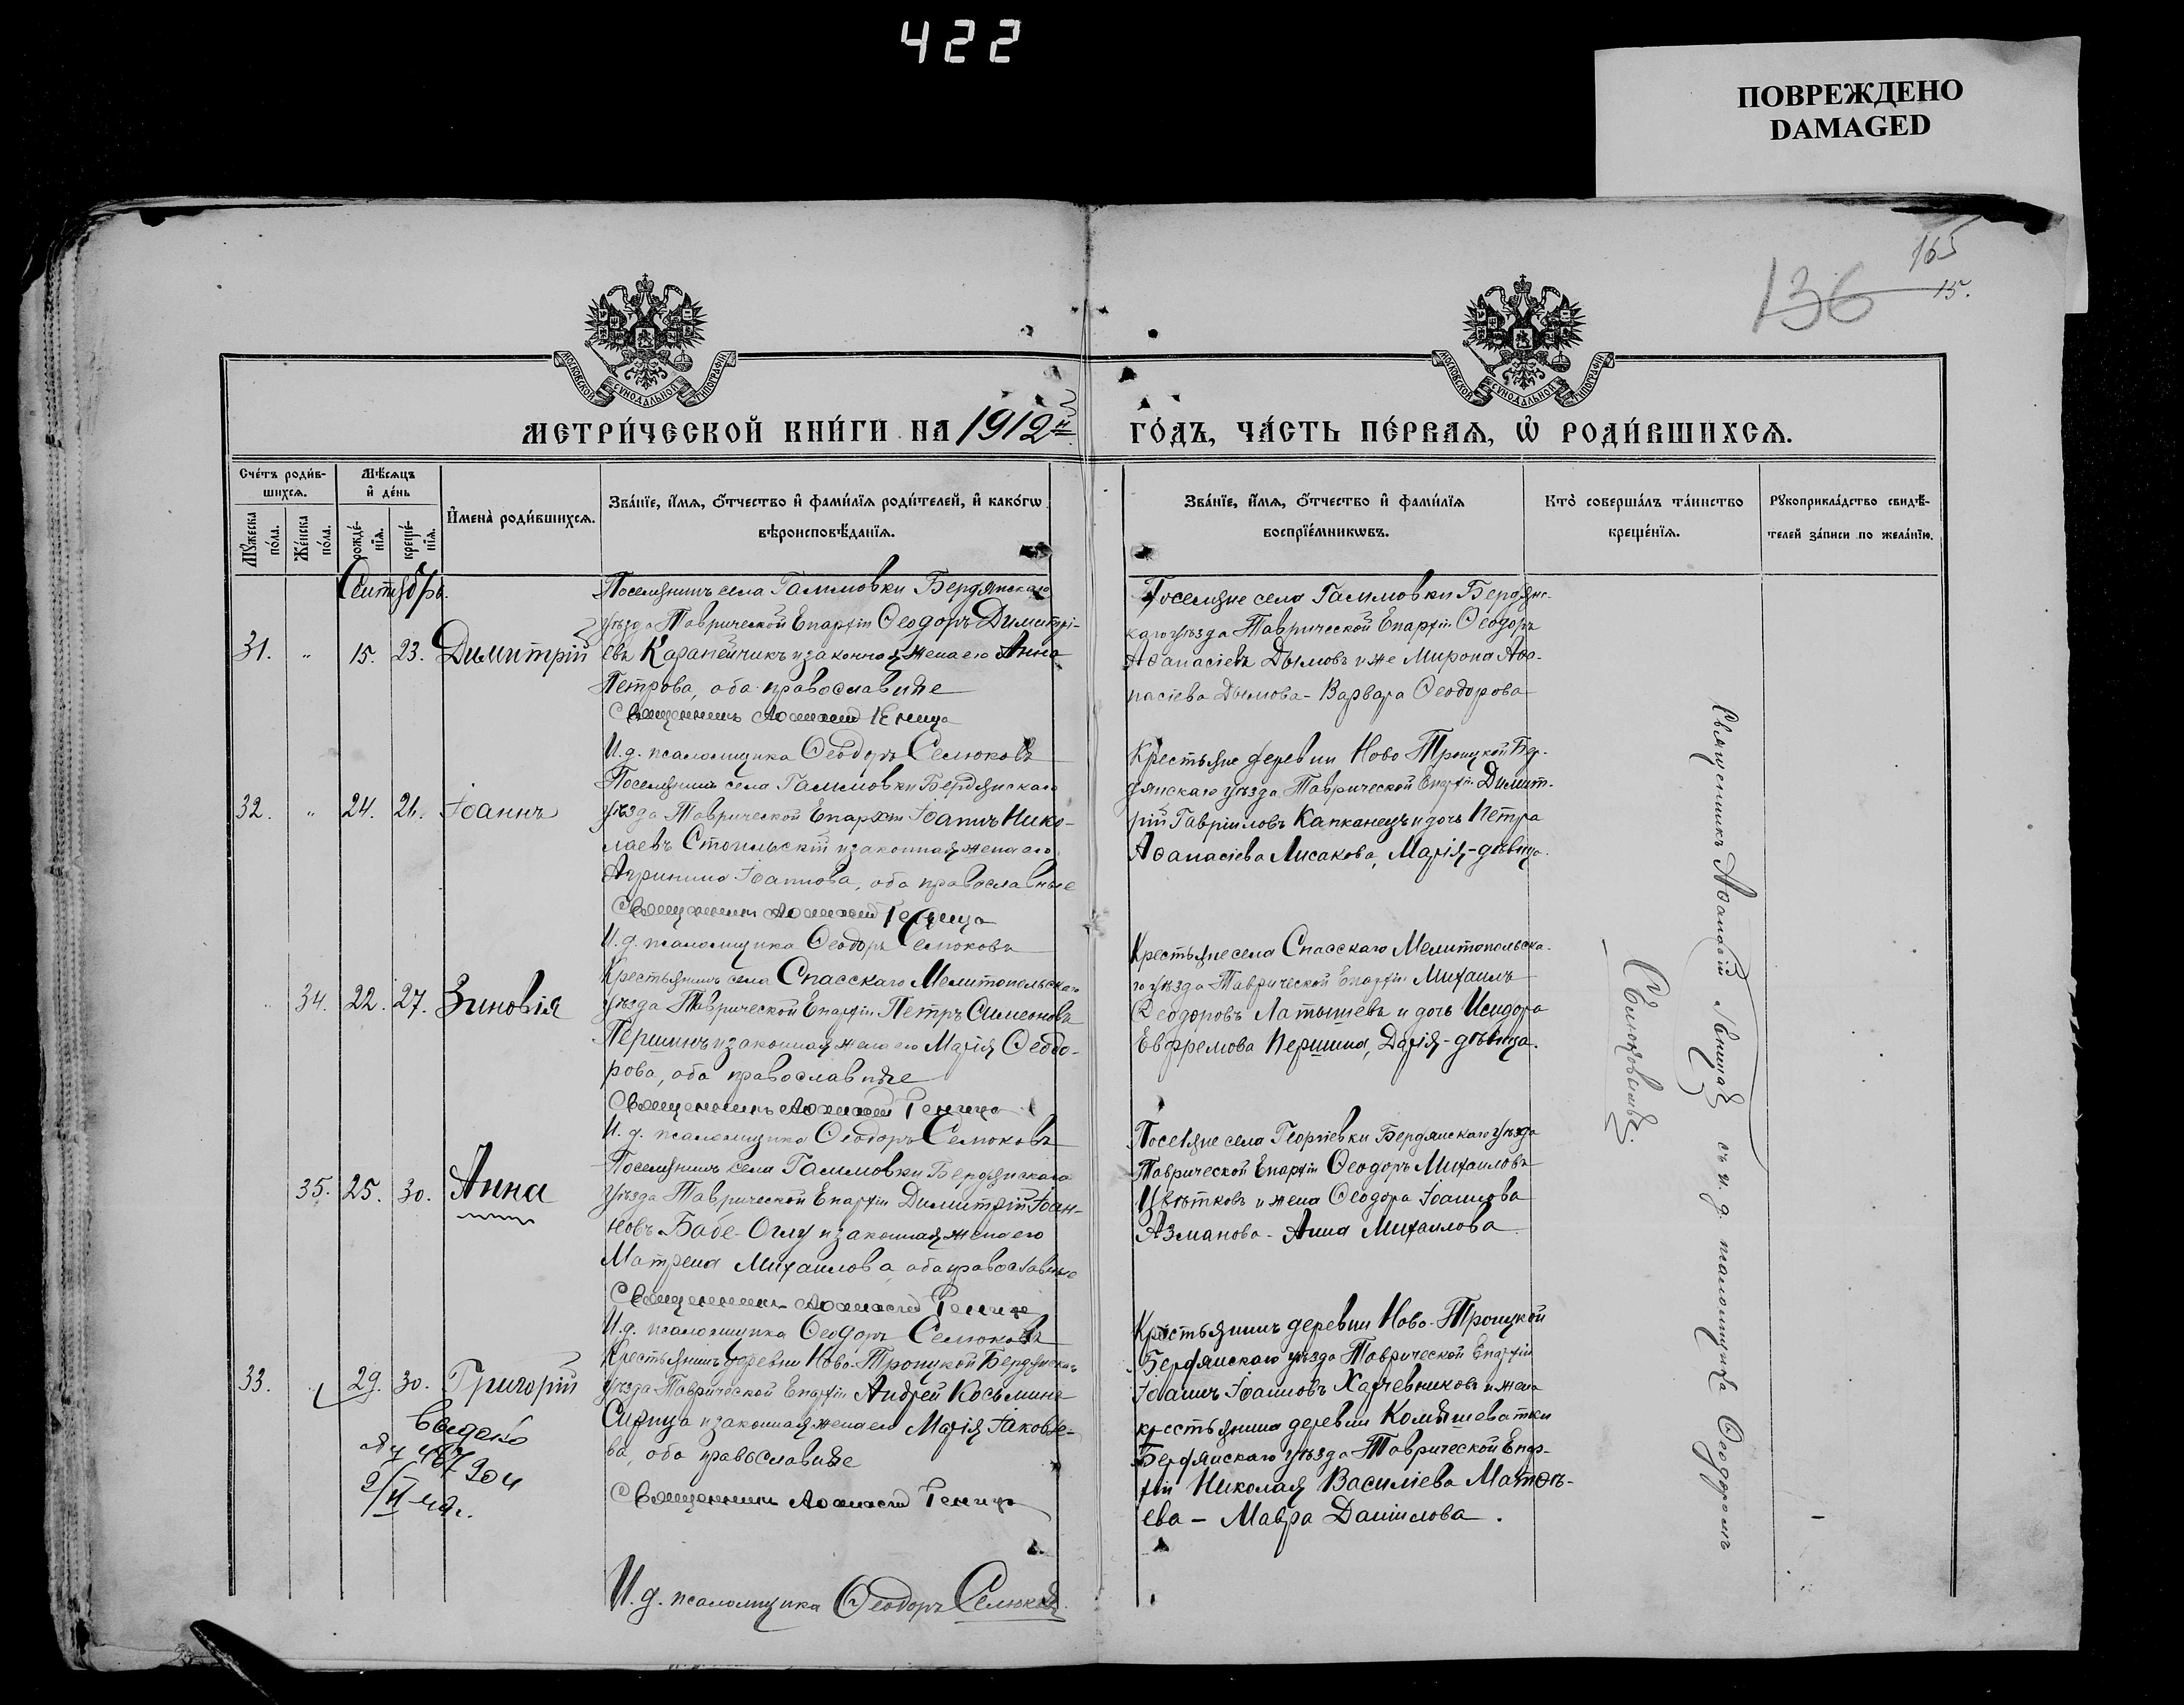 422
ПОВРЕЖДЕНО
DAMAGED
165
136
15.
МОСКОВСКОЙ СѴНОДАЛЬНОЙ ТИПОГРАФІИ
МОСКОВСКОЙ СѴНОДАЛЬНОЙ ТИПОГРАФІИ
МЕТРИ́ЧЕСКОЙ КНИ́ГИ НА 1912й
ГО́ДЪ, ЧА́СТЬ ПЕ́РВАЯ, Ѡ҆ РОДИ́ВШИХСЯ.
Сче́тъ роди́в-
шихся.
Мѣ́сяцъ
и҆ де́нь
Мꙋ́жеска по́ла.
Же́нска по́ла.
рожде́-
нїя.
креще́-
нїя.
И҆мена̀ роди́вшихся.
Зва́нїе, и҆́мя, о҆́тчество и҆ фами́лїя роди́телей, и҆ како́гѡ
вѣроисповѣ́данїя.
Зва́нїе, и҆́мя, о҆́тчество и҆ фами́лїя
воспрїе́мникѡвъ.
Кто̀ соверша́лъ та́инство
креще́нїя.
Рꙋкоприкла́дство свидѣ́-
телей за́писи по жела́нїю.
Сентябрь.
31. " 15. 23. Димитрій
Поселянинъ села Гаммовки Бердянскаго
уѣзда Таврической Епархіи Ѳеодоръ Димитрі-
евъ Карапейчикъ и законная жена его Анна
Петрова, оба православные
Священникъ Аѳанасій
И. д. псаломщика Ѳеодоръ Селюковъ
Поселяне села Гаммовки Бердянс-
каго уѣзда Таврической Епархіи Ѳеодоръ
Аѳанасіевъ Дымовъ и же Мирона Аѳа-
насіева Дымова - Варвара Ѳеодорова
32. " 24. 26. Іоаннъ
Поселянинъ села Гаммовки Бердянскаго
уѣзда Таврической Епархіи Іоаннъ Нико-
лаевъ Стоильскій и законная жена его
Агрипина Іоаннова, оба православные
Священникъ Аѳанасій
И. д. псаломщика Ѳеодоръ Селюковъ
Крестьяне деревни Ново Троицкой Бер-
дянскаго уѣзда Таврической Епархіи Димит-
рій Гавріиловъ Капканецъ и дочь Петра
Аѳанасіева Лисакова, Марія - дѣвица.
34. 22. 27. Зиновія
Крестьянинъ села Спасскаго Мелитопольскаго
уѣзда Таврической Епархіи Петръ Симеоновъ
Першинъ и законная жена его Марія Ѳеодо-
рова, оба православные
Священникъ Аѳанасій
И. д. псаломщика Ѳеодоръ Селюковъ
Крестьяне села Спасскаго Мелитопольска-
го уѣзда Таврической Епархіи Михаилъ
Ѳеодоровъ Латышевъ и дочь Исидора
Евфремова Першина, Дарія - дѣвица.
35. 25. 30. Анна
Поселянинъ села Гаммовки Бердянскаго
уѣзда Таврической Епархіи Димитрій Іоан-
новъ Бабе-Оглу и законная жена его
Матрена Михаилова оба православные
Священникъ Аѳанасій
И. д. псаломщика Ѳеодоръ Селюковъ
Поселяне села Георгіевки Бердянскаго уѣзда
Таврической Епархіи Ѳеодоръ Михаиловъ
Цвѣтковъ и жена Ѳеодора Іоаннова
Азманова - Анна Михаилова
33. 29. 30. Григорій
Крестьянинъ деревни Ново-Троицкой Бердянскаго
уѣзда Таврической Епархіи Андрей Косьминъ
Сирица и законная жена его Марія Іаковле-
ва, оба православные
Священникъ Аѳанасій
И. д. псаломщика Ѳеодоръ Селюковъ
Крестьянинъ деревни Ново-Троицкой
Бердянскаго уѣзда Таврической Епархіи
Іоаннъ Іоанновъ Харчевниковъ и жена
крестьянина деревни Комышеватки
Бердянскаго уѣзда Таврической Епар-
хіи Николая Василіева Матвѣ-
ева - Мавра Даніилова.
Священникъ Аѳанасій съ и. д. псаломщика Ѳеодоромъ
Селюковымъ.